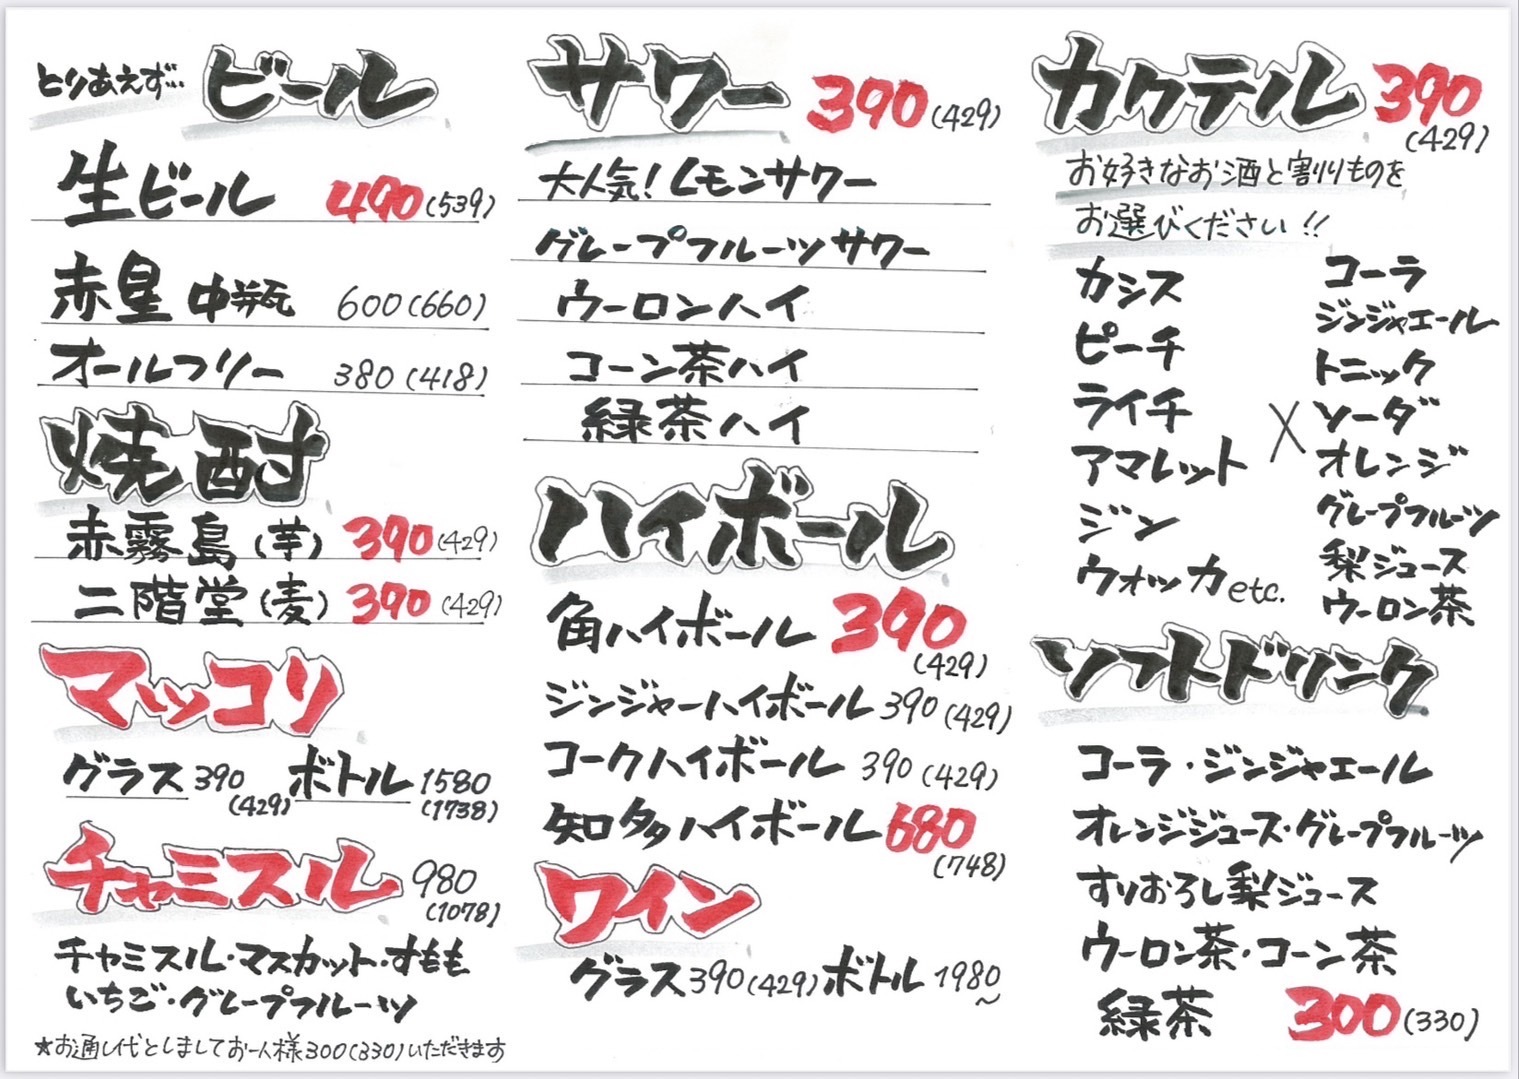 とりあえず… ビール
生ビール 490(539)
赤星 中瓶 600(660)
オールフリー 380(418)
焼酎
赤霧島(芋) 390(429)
二階堂(麦) 390(429)
マッコリ
グラス390(429) ボトル1580(1738)
チャミスル 980(1078)
チャミスル・マスカット・すもも
いちご・グレープフルーツ
★お通し代としましてお一人様300(330)いただきます
サワー 390(429)
大人気!レモンサワー
グレープフルーツサワー
ウーロンハイ
コーン茶ハイ
緑茶ハイ
ハイボール
角ハイボール 390(429)
ジンジャーハイボール 390(429)
コークハイボール 390(429)
知多ハイボール 680(748)
ワイン
グラス390(429)ボトル1980~
カクテル 390(429)
お好きなお酒と割りものを
お選びください!!
カシス
ピーチ
ライチ
アマレット
ジン
ウォッカetc.
×
コーラ
ジンジャエール
トニック
ソーダ
オレンジ
グレープフルーツ
梨ジュース
ウーロン茶
ソフトドリンク
コーラ・ジンジャエール
オレンジジュース・グレープフルーツ
すりおろし梨ジュース
ウーロン茶・コーン茶
緑茶 300(330)